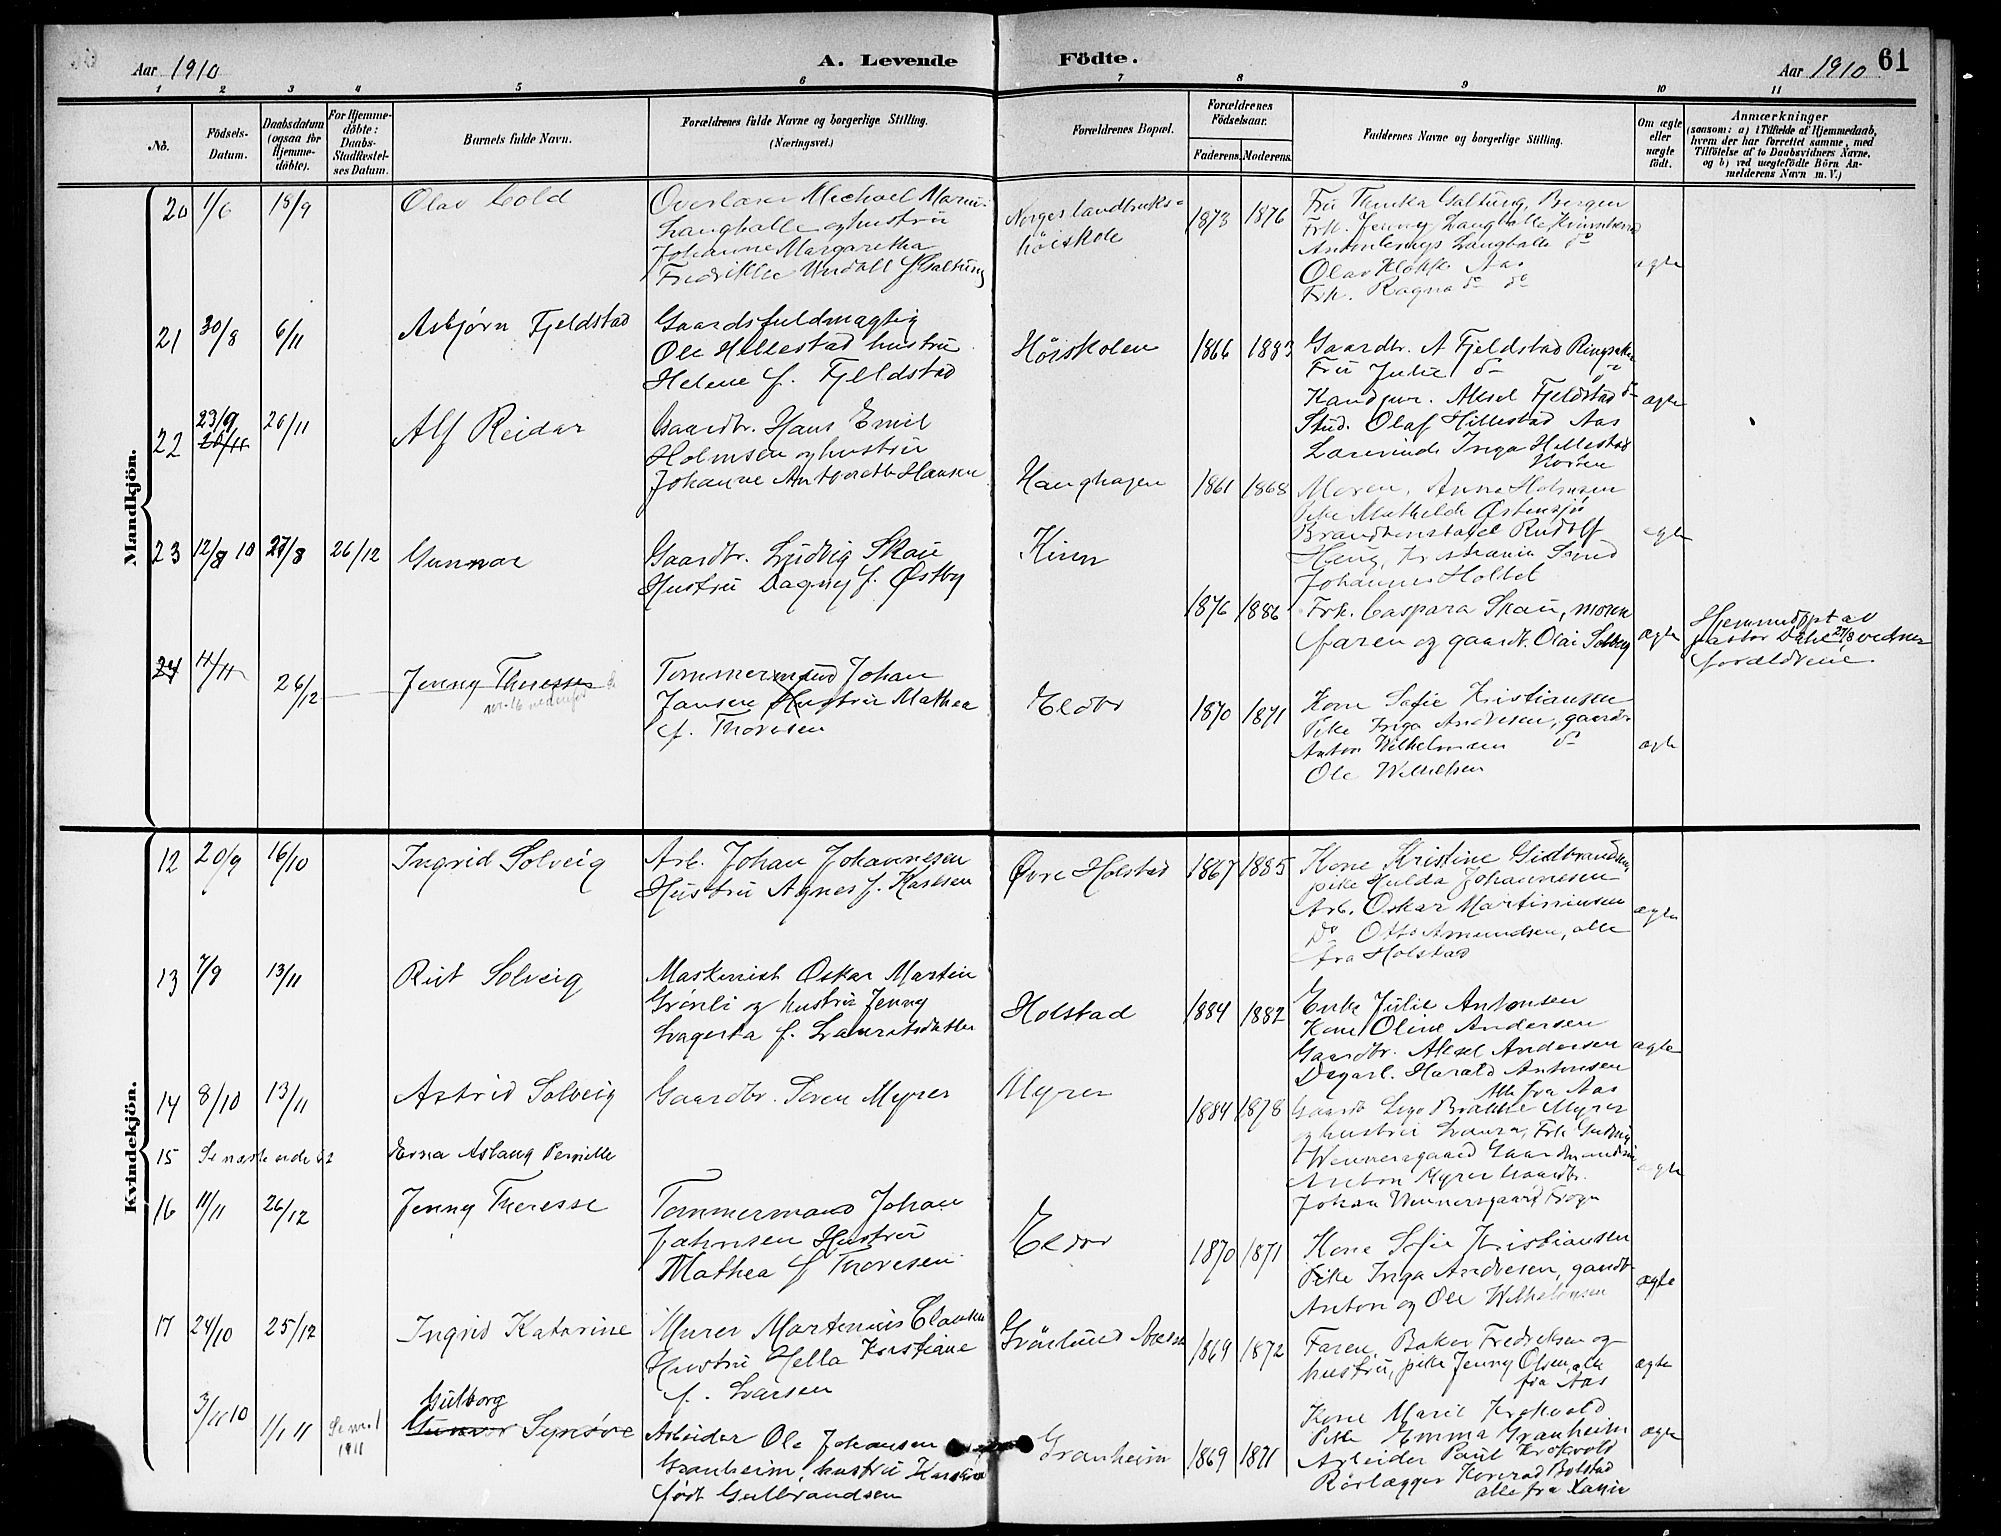 Aar 1910
A. Levende
Födte.
Aar 1910
61
1 2 3 4 5 6 7 8 9 10 11
No.
Födsels-
Datum.
Daabsdatum
(ogsaa for
Hjemme-
döbte).
For Hjemme-
döbte:
Daabs-
Stadfæstel-
ses Datum.
Barnets fulde Navn.
Forældrenes fulde Navne og borgerlige Stilling.
(Næringsvei.)
Forældrenes Bopæl.
Forældrenes
Födselsaar.
Faderens. Moderens.
Faddernes Navne og borgerlige Stilling.
Om ægte
eller
uægte
födt.
Anmærkninger
(saasom: a) i Tilfælde af Hjemmedaab,
hvem der har forrettet samme, med
Tilföielse af to Daabsvidners Navne,
og b) ved uægtefödte Börn An-
melderens Navn m. V.)
Mandkjön.
20 1/6 18/9 Olav Cold
Overlærer Michael
Langballe og hustru
Johanne Margaretha
Fredrikke Undall f. Galtung
Norges landbruks-
høiskole
1873 1876
Fru Galtung, Bergen
Frk. Jenny Langballe
Langballe do
Olav Klokk Aas
Frk. Ragna do do
ægte
21 30/8 6/11 Asbjørn Fjeldstad
Gaardsfuldmægtig
Ole Hillestad hustru
Helene f. Fjeldstad
Høiskolen
1866 1883
Gaardbr. A Fjeldstad
Fru Julie do
Aksel Fjeldstad do
Stud. Olaf Hillestad Aas
Lærerinde Inga Hillestad
ægte
22 23/9 20/11 20/11 Alf Reidar
Gaardbr. Hans Emil
Holmsen og hustru
Johanne Hansen
Haughagen
1861 1868
Moren, Anna Holmsen
Pike Mathilde Østensjø
Rudolf
Kristiania
Johannes Holtet
ægte
23 12/8 10 27/8 26/12 Gunnar
Gaardbr. Ludvig Skau
Hustru Dagny f. Østby
Kinn
1876 1886
Frk. Caspara Skau, moren
faren og gaardb. Olai Solberg
ægte
Hjemmedøpt av
pastor Dahl 27/8
forældrene.
24 11/11 26/12 Jenny Theresse
nr. 16 nedenfor
Tømmermand Johan
Jansen Hustru Mathea
f. Thoresen
Eldor
1870 1871
Kone Sofie Kristiansen
Pike Inga Andresen, gaardbr
Anton Wilhelmsen do
Ole Wilhelmsen
ægte
Kvindekjön.
12 20/9 16/10 Ingrid Solveig
Arb. Johan Johannesen
Hustru Agnes f. Karlsen
Øvre Holstad
1867 1885
Kone Kristine Gulbrandsen,
pike Hulda Johannesen
Arb. Oskar Martiniusen
Do Otto Amundsen, alle
fra Holstad
ægte
13 7/9 13/11 Rut Solveig
Maskinist Oskar Martin
Grønli og hustru Jenny
Lagerta f. Lauritsdatter
Holstad
1884 1882
Enke Julie Antonsen
Kone Oline Andersen
Gaardbr. Aksel Andersen
Dagarb. Harald Antonsen
Alle fra Aas
ægte
14 8/10 13/11 Astrid Solveig
Gaardbr. Søren Myrer
Myrer
1884 1878
Myrer
og hustru Laura, Frk
Wennersgaard
Anton Myrer Gaardbr.
Johan Wennersgaard Frogn
ægte
15 Se næste side Erna Aslaug Pernille
16 11/11 26/12 Jenny Theresse
Tømmermand Johan
Jahnsen Hustru
Mathea f Thoresen
Eldor
1870 1871
Kone Sofie Kristiansen
Pike Inga Andresen, gaardb
Anton og Ole Wilhelmsen
ægte
17 24/10 25/12 Ingrid Katarine
Murer Martenius Clausen
Hustru Hella Kristiane
f. Larsen
Grönlund Aas
1869 1872
Faren, Baker Fredriksen og
hustru, pike Jenny Olsen, alle
fra Aas
ægte
3/11 10 1/1 11 Se nr. 1
1911
Gulborg
Gunvor Synøve
Arbeider Ole Johansen
Granheim, hustru
født Gulbrandsen
Granheim
1869 1871
Kone Marie Krokvold
Pike Emma Granheim
Arbeider Paul Krokvold
Rørlægger Konrad Bolstad
alle fra
ægte